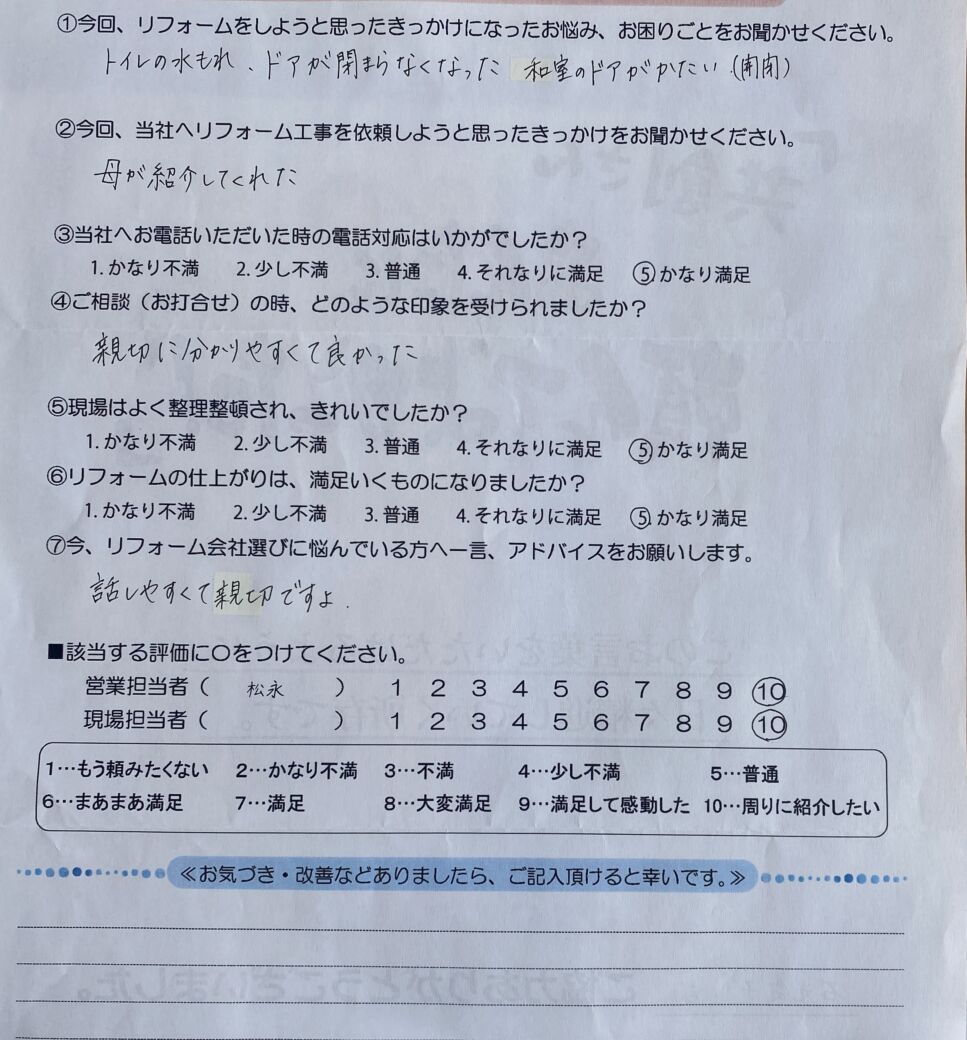 ①今回、リフォームをしようと思ったきっかけになったお悩み、お困りごとをお聞かせください。
トイレの水もれ、ドアが閉まらなくなった 和室のドアがかたい.(開閉)
②今回、当社へリフォーム工事を依頼しようと思ったきっかけをお聞かせください。
母が紹介してくれた
③当社へお電話いただいた時の電話対応はいかがでしたか？
1. かなり不満 2. 少し不満 3. 普通 4. それなりに満足 5. かなり満足
④ご相談（お打合せ）の時、どのような印象を受けられましたか？
親切に分かりやすくて良かった
⑤現場はよく整理整頓され、きれいでしたか？
1. かなり不満 2. 少し不満 3. 普通 4. それなりに満足 5. かなり満足
⑥リフォームの仕上がりは、満足いくものになりましたか？
1. かなり不満 2. 少し不満 3. 普通 4. それなりに満足 5. かなり満足
⑦今、リフォーム会社選びに悩んでいる方へ一言、アドバイスをお願いします。
話しやすくて親切ですよ.
■該当する評価に〇をつけてください。
営業担当者（ 松永 ） 1 2 3 4 5 6 7 8 9 10
現場担当者（ ） 1 2 3 4 5 6 7 8 9 10
1…もう頼みたくない 2…かなり不満 3…不満 4…少し不満 5…普通
6…まあまあ満足 7…満足 8…大変満足 9…満足して感動した 10…周りに紹介したい
≪お気づき・改善などありましたら、ご記入頂けると幸いです。≫